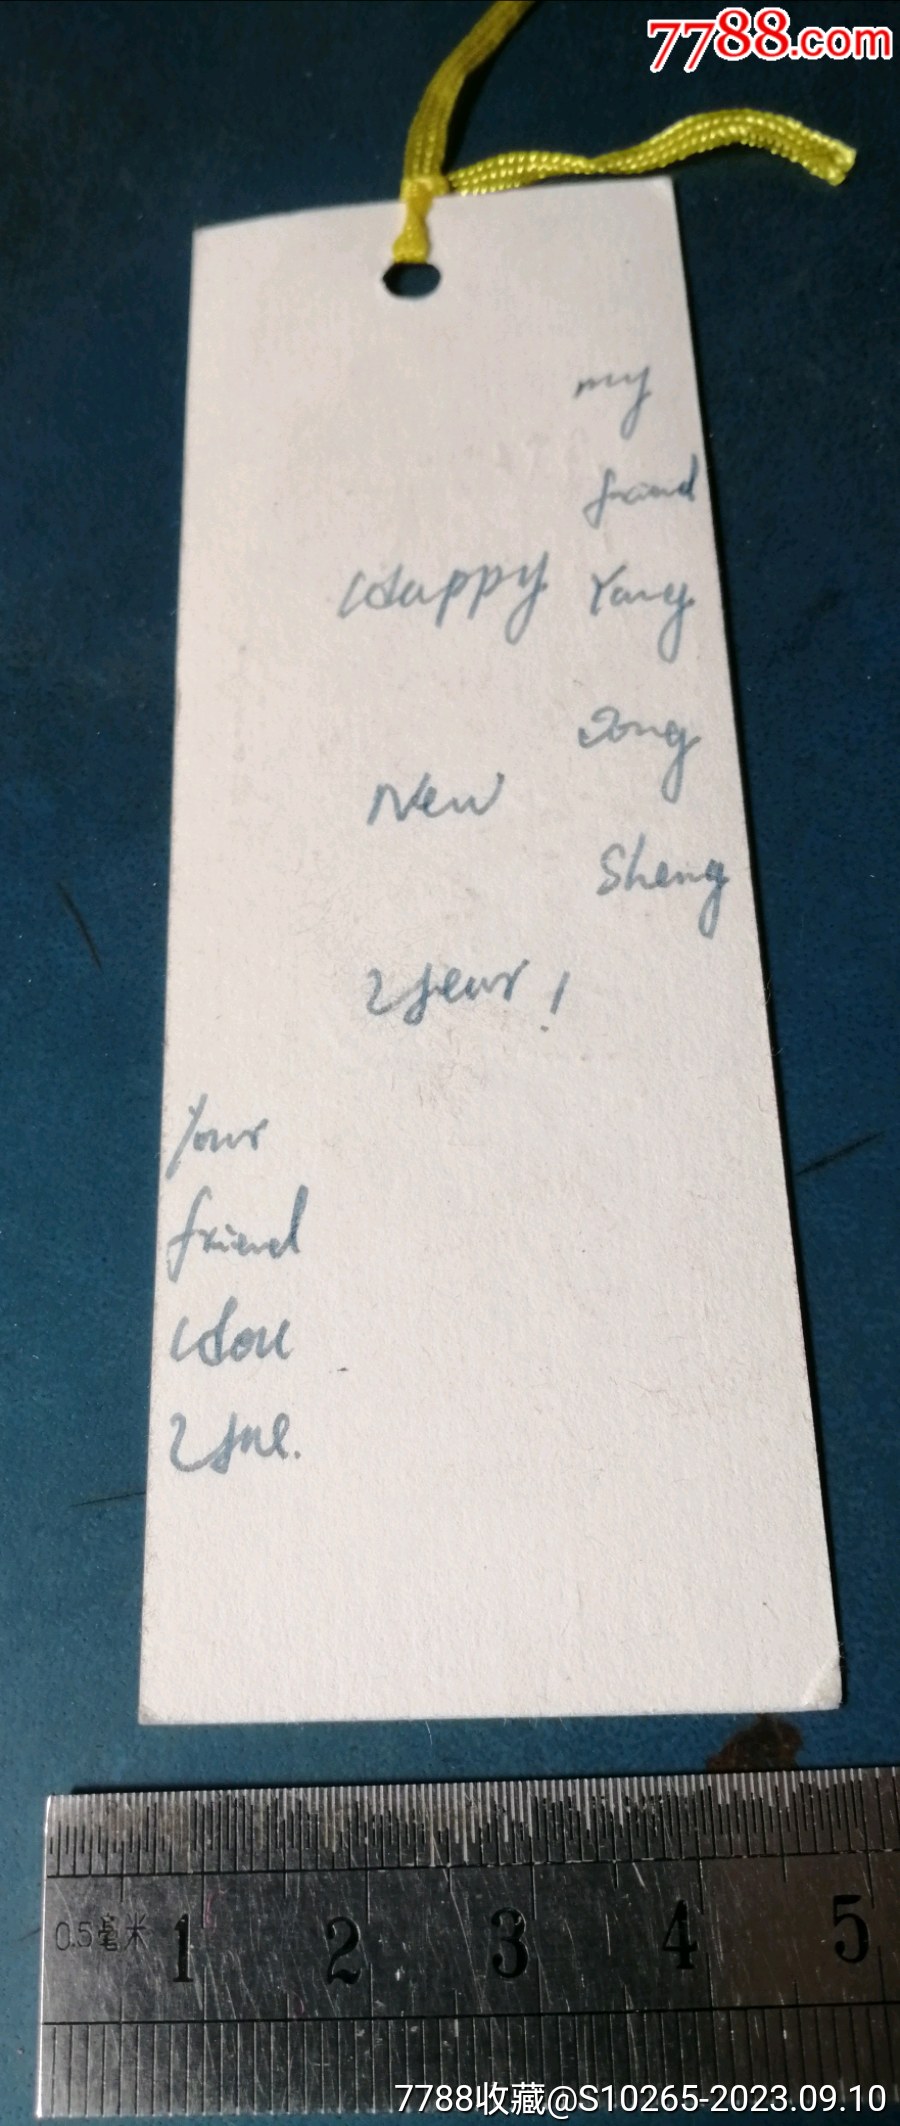 7788.com
my
friend
Yang
Dong
Sheng
Happy
New
Year!
Your
friend
Hou
Yue.
0.5毫米 1 2 3 4 5
7788收藏@S10265-2023.09.10